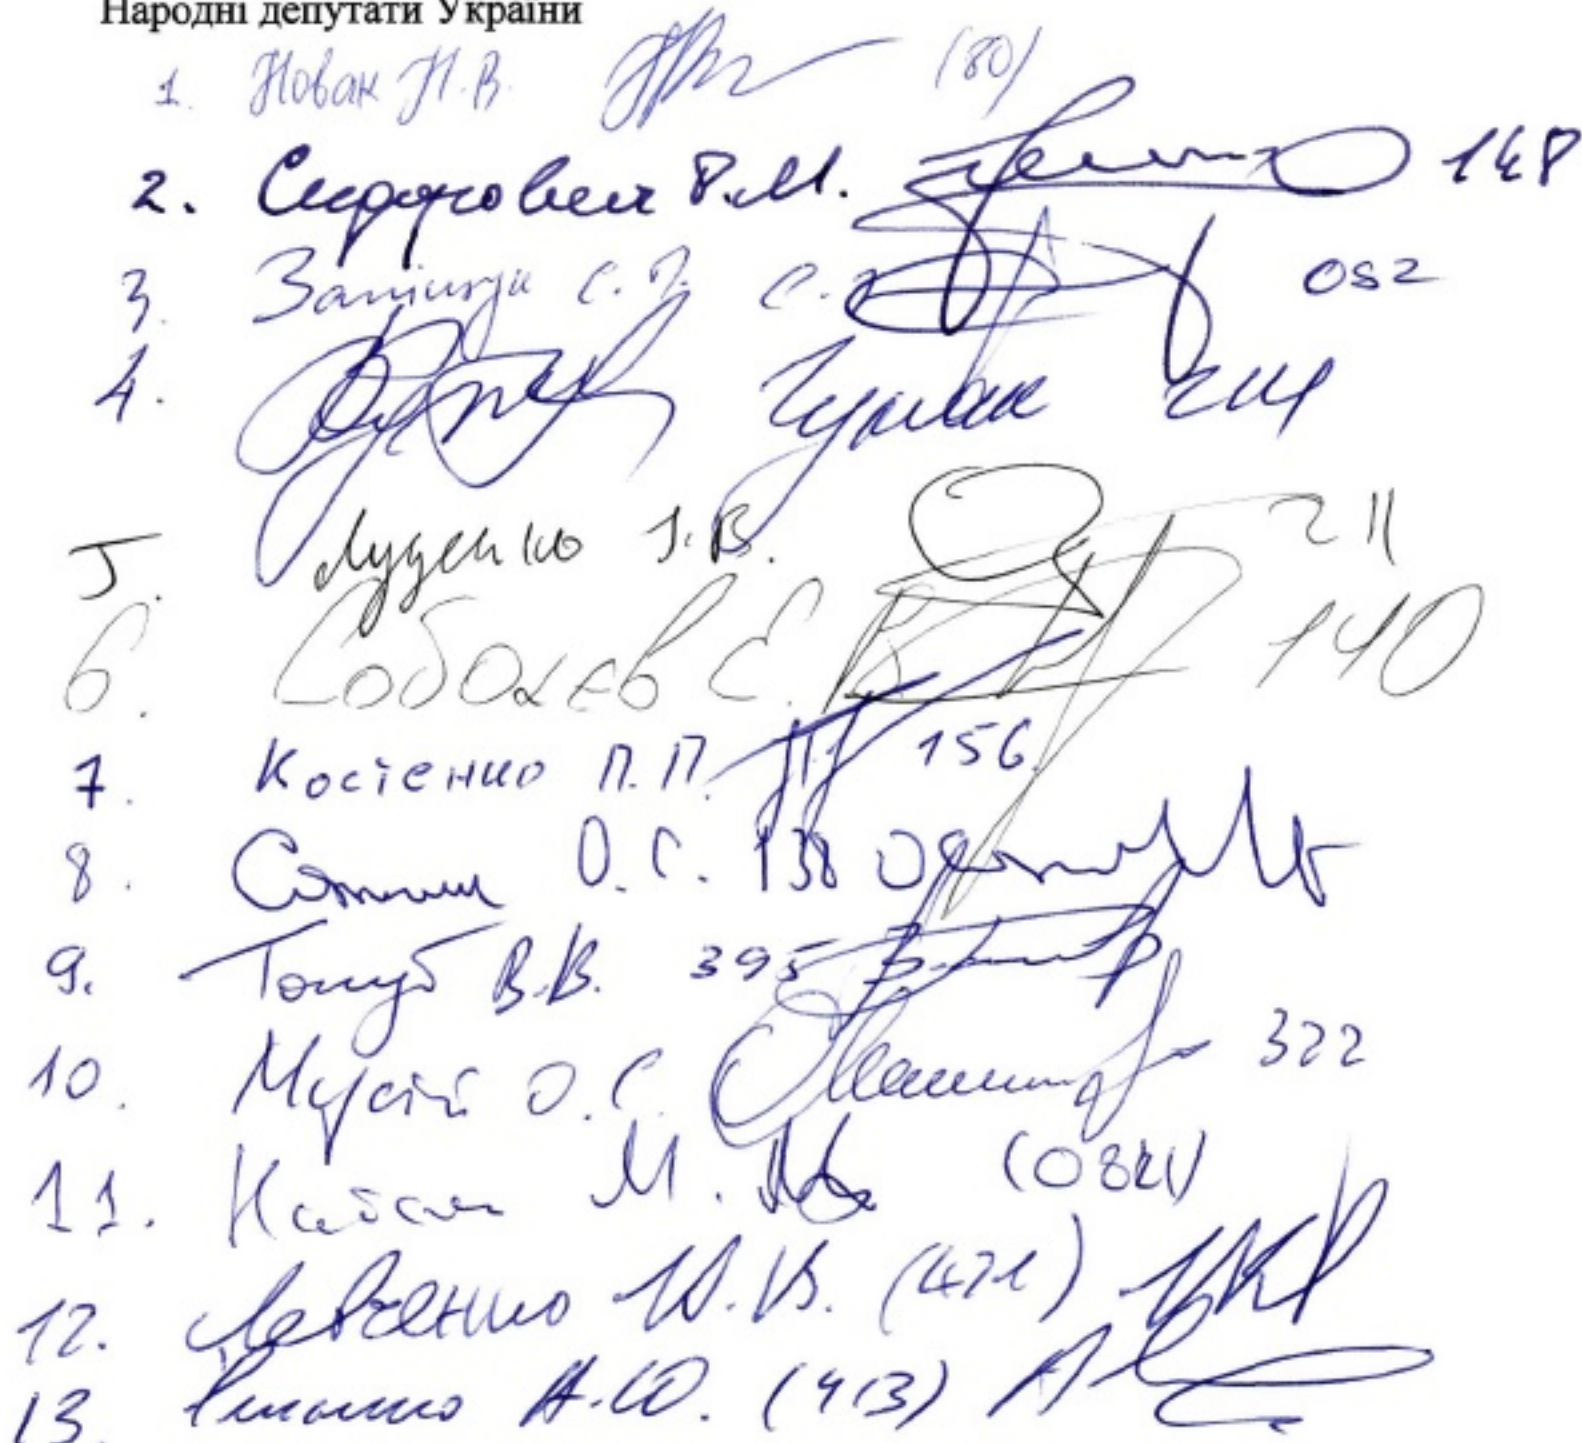 Народні депутати України
1. Новак Н.В. (80)
2. Сидорович Р.М. 148
3. Заліщук С.П. 052
4. Чумак
5. Луценко І.В. 211
6. Соболєв Є. 140
7. Костенко П.П. 156
8. Сотник О.С. 138
9. Голуб В.В. 395
10. Мусій О.С. 322
11. Найєм М.
12. Левченко Ю.В. (421)
13. А.Ю. (413)